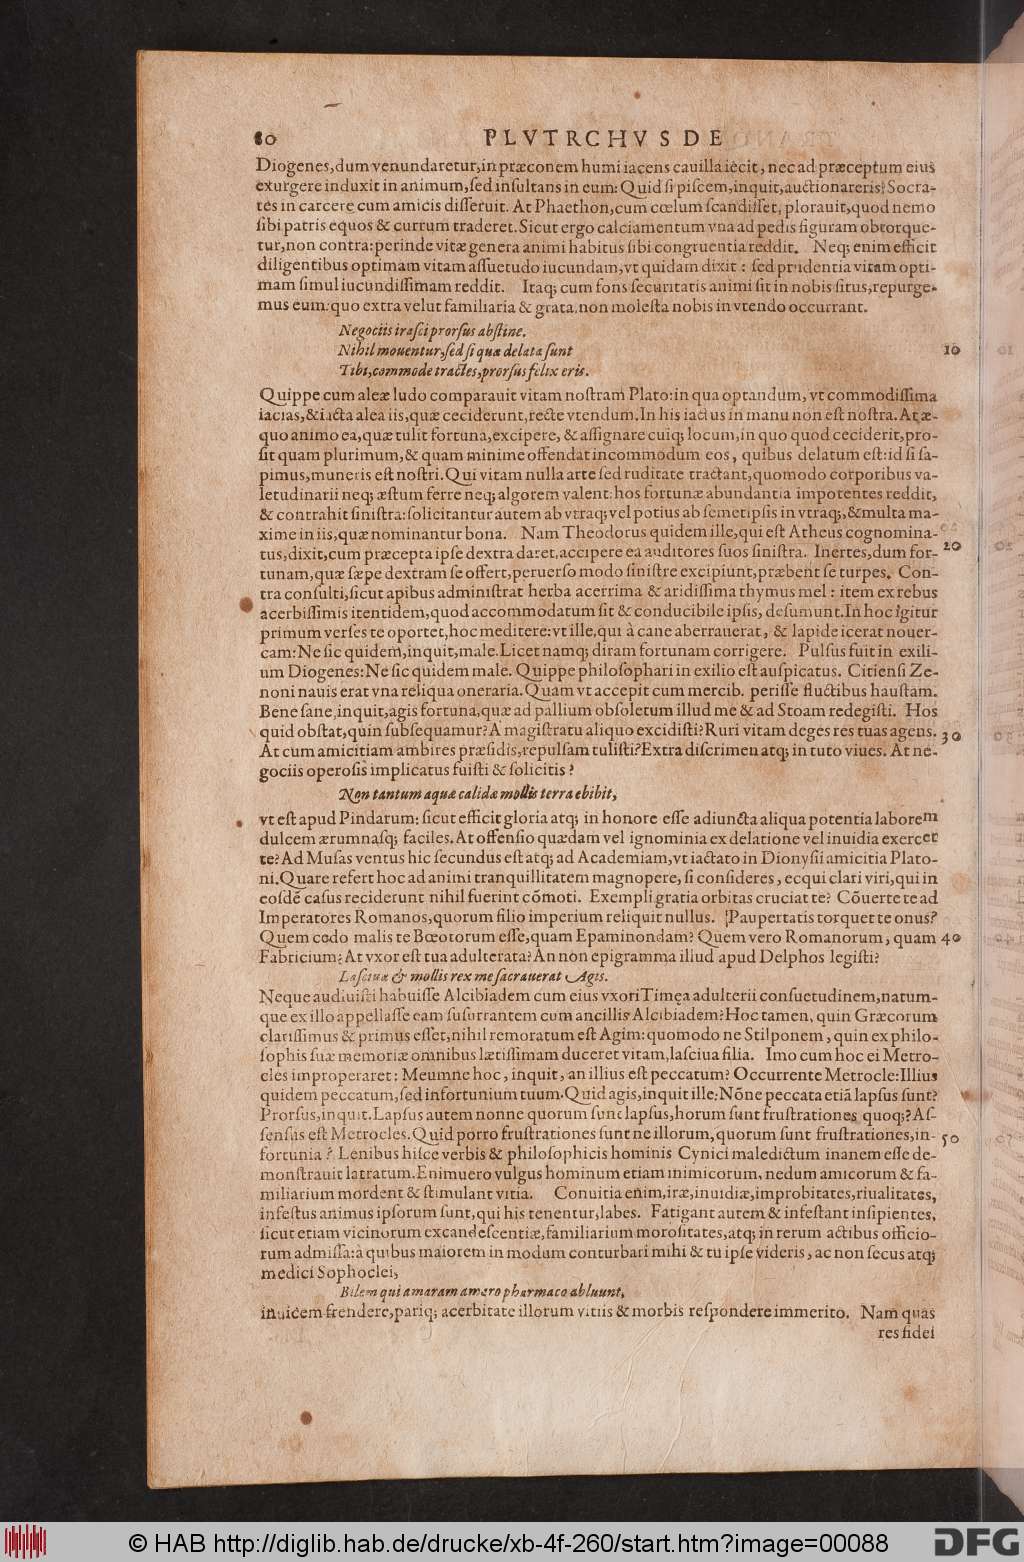 80 PLVTRCHVS DE
Diogenes, dum venundaretur, in præconem humi iacens cauilla iecit, nec ad præceptum eius
exurgere induxit in animum, sed insultans in eum: Quid si piscem, inquit, auctionareris? Socra-
tes in carcere cum amicis disseruit. At Phaethon, cum cœlum scandisset, plorauit, quod nemo
sibi patris equos & currum traderet. Sicut ergo calciamentum vna ad pedis figuram obtorque-
tur, non contra: perinde vitæ genera animi habitus sibi congruentia reddit. Neq; enim efficit
diligentibus optimam vitam assuetudo iucundam, vt quidam dixit: sed prudentia vitam opti-
mam simul iucundissimam reddit. Itaq; cum fons securitatis animi sit in nobis situs, repurge-
mus eum: quo extra velut familiaria & grata, non molesta nobis in vtendo occurrant.
Negociis irasci prorsus abstine.
Nihil mouentur, sed si quæ delata sunt 10
Tibi, commode tractes, prorsus felix eris.
Quippe cum aleæ ludo comparauit vitam nostram Plato: in qua optandum, vt commodissima
iacias, & iacta alea iis, quæ ceciderunt, recte vtendum. In his iactus in manu non est nostra. At æ-
quo animo ea, quæ tulit fortuna, excipere, & assignare cuiq; locum, in quo quod ceciderit, pro-
sit quam plurimum, & quam minime offendat incommodum eos, quibus delatum est: id si sa-
pimus, muneris est nostri. Qui vitam nulla arte sed ruditate tractant, quomodo corporibus va-
letudinarii neq; æstum ferre neq; algorem valent: hos fortunæ abundantia impotentes reddit,
& contrahit sinistra: solicitantur autem ab vtraq; vel potius ab semetipsis in vtraq;, & multa ma-
xime in iis, quæ nominantur bona. Nam Theodorus quidem ille, qui est Atheus cognomina-
tus, dixit, cum præcepta ipse dextra daret, accipere ea auditores suos sinistra. Inertes, dum for- 20
tunam, quæ sæpe dextram se offert, peruerso modo sinistre excipiunt, præbent se turpes. Con-
tra consulti, sicut apibus administrat herba acerrima & aridissima thymus mel: item ex rebus
acerbissimis itentidem, quod accommodatum sit & conducibile ipsis, desumunt. In hoc igitur
primum verses te oportet, hoc meditere: vt ille, qui à cane aberrauerat, & lapide icerat nouer-
cam: Ne sic quidem, inquit, male. Licet namq; diram fortunam corrigere. Pulsus fuit in exili-
um Diogenes: Ne sic quidem male. Quippe philosophari in exilio est auspicatus. Citiensi Ze-
noni nauis erat vna reliqua oneraria. Quam vt accepit cum mercib. periisse fluctibus haustam.
Bene sane, inquit, agis fortuna, quæ ad pallium obsoletum illud me & ad Stoam redegisti. Hos
quid obstat, quin subsequamur? A magistratu aliquo excidisti? Ruri vitam deges res tuas agens. 30
At cum amicitiam ambires præsidis, repulsam tulisti? Extra discrimen atq; in tuto viues. At ne-
gociis operosis implicatus fuisti & solicitis?
Non tantum aquæ calidæ mollis terra ebibit,
vt est apud Pindarum: sicut efficit gloria atq; in honore esse adiuncta aliqua potentia laborem
dulcem ærumnasq; faciles. At offensio quædam vel ignominia ex delatione vel inuidia exercet
te? Ad Musas ventus hic secundus est atq; ad Academiam, vt iactato in Dionysii amicitia Plato-
ni. Quare refert hoc ad animi tranquillitatem magnopere, si consideres, ecqui clari viri, qui in
eosdē casus reciderunt nihil fuerint cōmoti. Exempli gratia orbitas cruciat te? Cōuerte te ad
Imperatores Romanos, quorum filio imperium reliquit nullus. Paupertatis torquet te onus?
Quem cedo malis te Bœotorum esse, quam Epaminondam? Quem vero Romanorum, quam 40
Fabricium? At vxor est tua adulterata? An non epigramma illud apud Delphos legisti?
Lasciuæ & mollis rex me sacrauerat Agis.
Neque audiuisti habuisse Alcibiadem cum eius vxori Timęa adulterii consuetudinem, natum-
que ex illo appellasse eam susurrantem cum ancillis Alcibiadem? Hoc tamen, quin Græcorum
clarissimus & primus esset, nihil remoratum est Agim: quomodo ne Stilponem, quin ex philo-
sophis suæ memoriæ omnibus lætissimam duceret vitam, lasciua filia. Imo cum hoc ei Metro-
cles improperaret: Meumne hoc, inquit, an illius est peccatum? Occurrente Metrocle: Illius
quidem peccatum, sed infortunium tuum. Quid agis, inquit ille: Nōne peccata etiā lapsus sunt?
Prorsus, inquit. Lapsus autem nonne quorum sunt lapsus, horum sunt frustrationes quoq;? As-
sensus est Metrocles. Quid porro frustrationes sunt ne illorum, quorum sunt frustrationes, in- 50
fortunia? Lenibus hisce verbis & philosophicis hominis Cynici maledictum inanem esse de-
monstrauit latratum. Enimuero vulgus hominum etiam inimicorum, nedum amicorum & fa-
miliarium mordent & stimulant vitia. Conuitia enim, iræ, inuidiæ, improbitates, riualitates,
infestus animus ipsorum sunt, qui his tenentur, labes. Fatigant autem & infestant insipientes,
sicut etiam vicinorum excandescentiæ, familiarium morositates, atq; in rerum actibus officio-
rum admissa: à quibus maiorem in modum conturbari mihi & tu ipse videris, ac non secus atq;
medici Sophoclei,
Bilem qui amaram amaro pharmaco abluunt,
inuicem frendere, pariq; acerbitate illorum vitiis & morbis respondere immerito. Nam quas
res fidei
© HAB http://diglib.hab.de/drucke/xb-4f-260/start.htm?image=00088
DFG